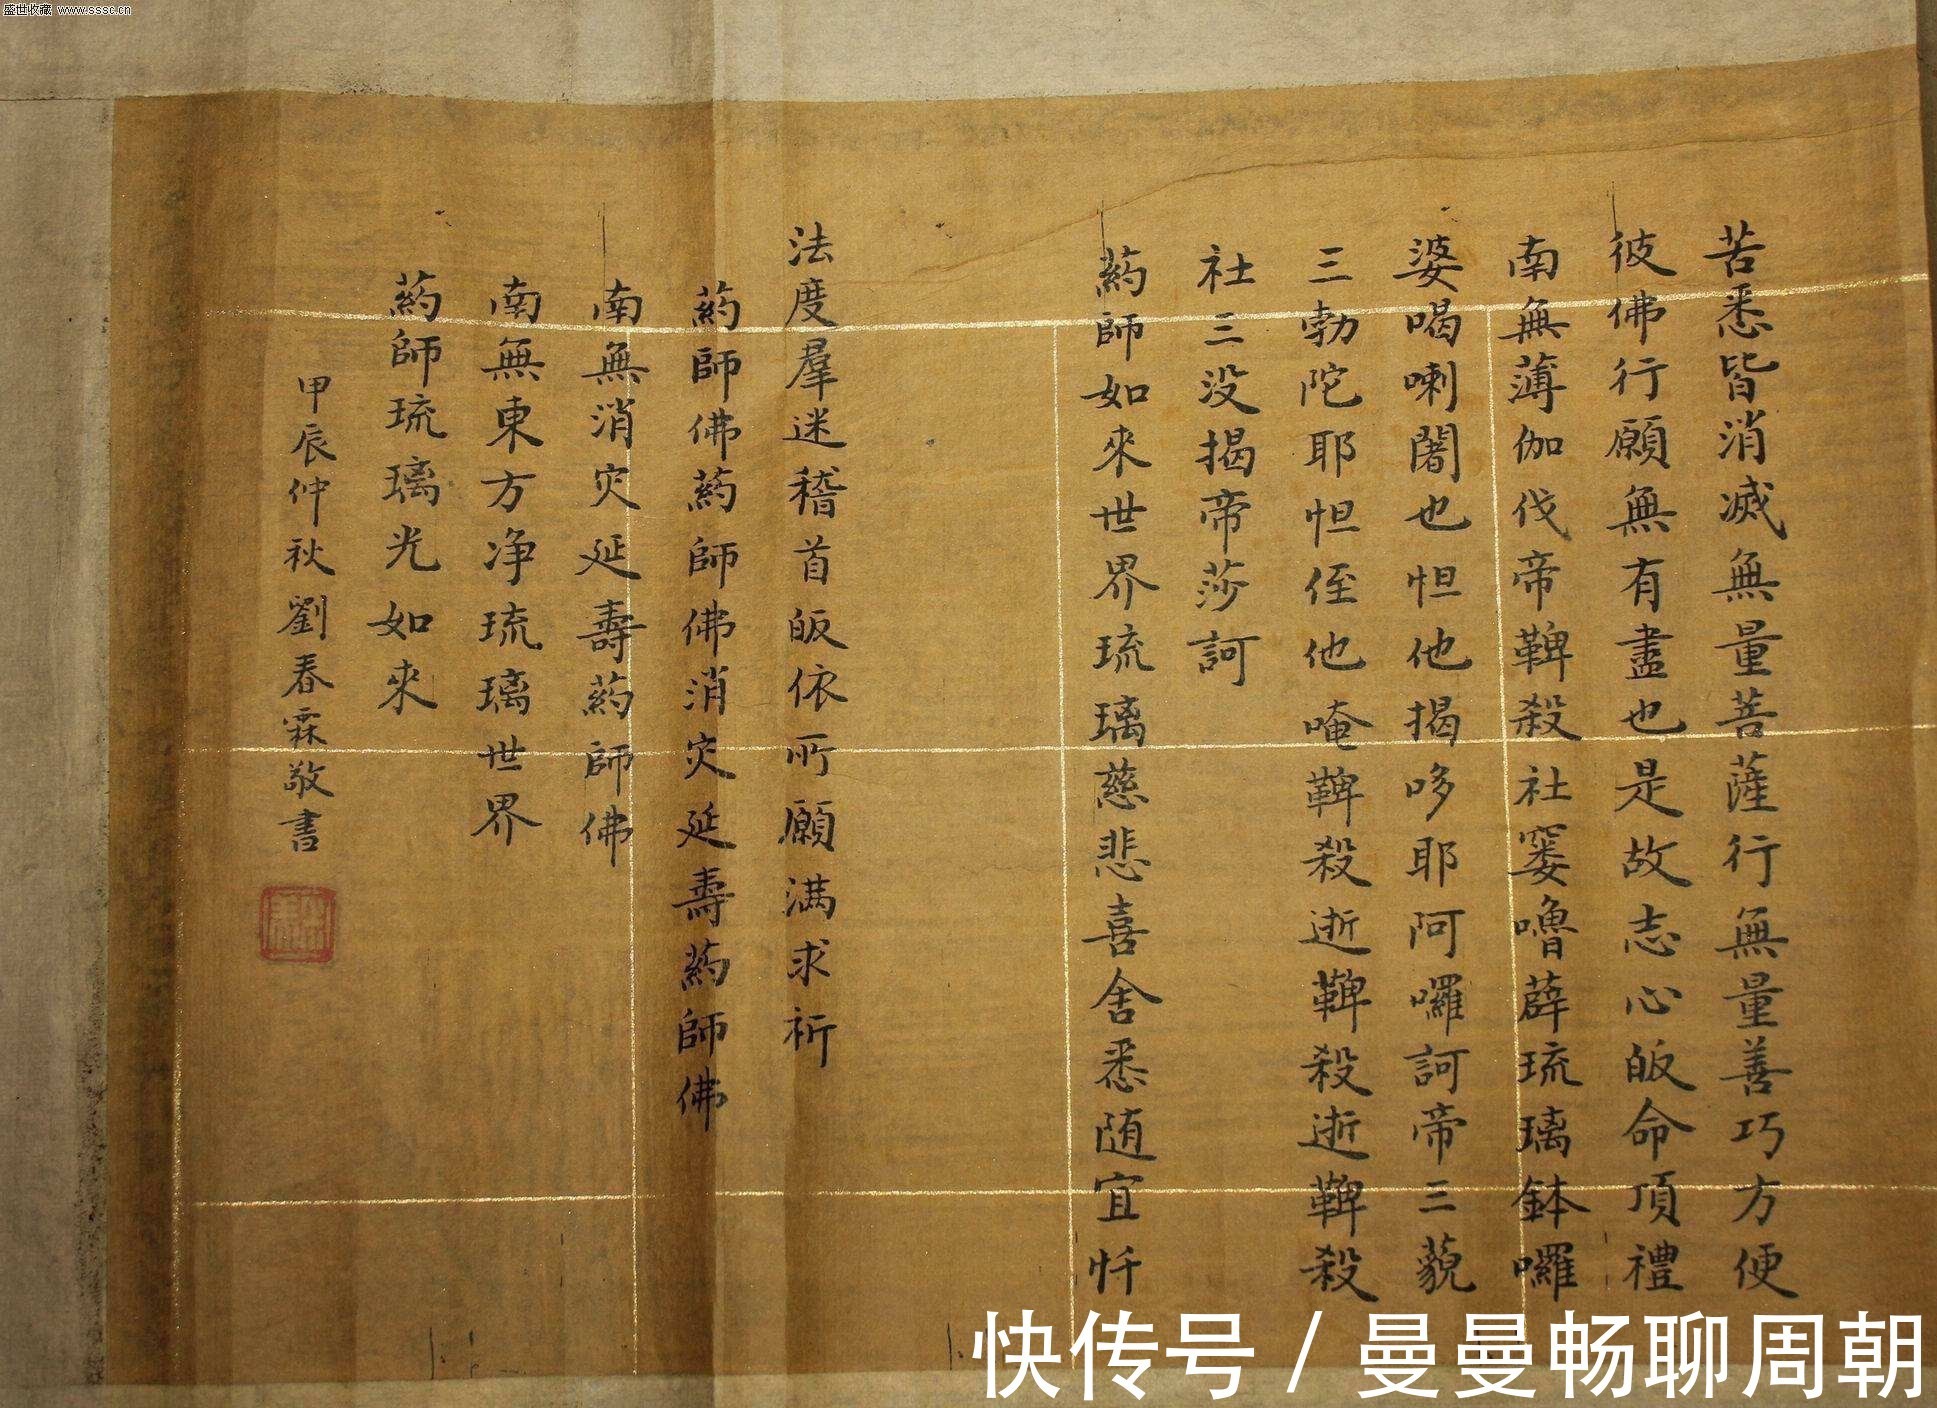 盛世收藏 www.sssc.cn
苦悉皆消滅無量菩薩行無量善巧方便
彼佛行願無有盡也是故志心皈命頂禮
南無薄伽伐帝鞞殺社窶嚕薜琉璃鉢囉
婆喝喇闍也怛他揭哆耶阿囉訶帝三藐
三勃陀耶怛侄他唵鞞殺逝鞞殺逝鞞殺
社三没揭帝莎訶
药師如來世界琉璃慈悲喜舍悉随宜忏
法度羣迷稽首皈依所願満求祈
药師佛药師佛消灾延壽药師佛
南無消灾延壽药師佛
南無東方净琉璃世界
药師琉璃光如來
甲辰仲秋劉春霖敬書
快传号/曼曼畅聊周朝